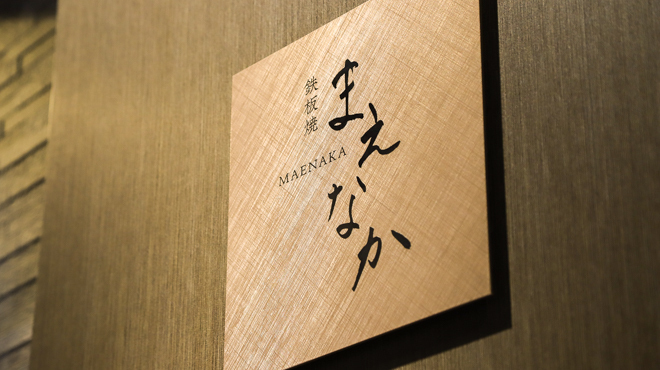 鉄板焼
まえなか
MAENAKA